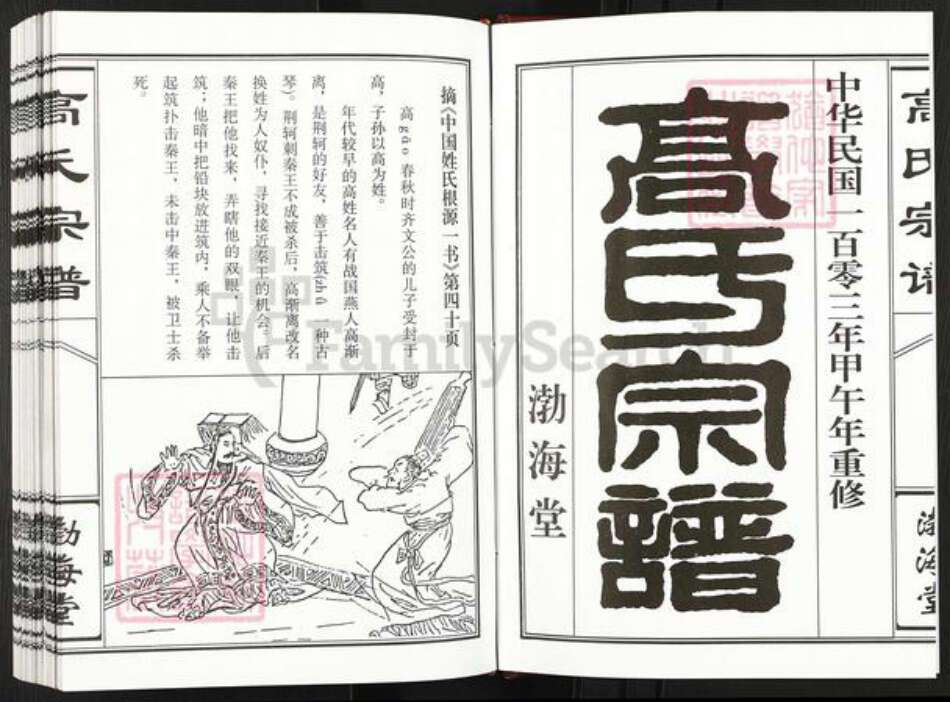 中华民国一百零三年甲午年重修
高氏宗譜
渤海堂
高氏宗谱
渤海堂
摘《中国姓氏根源一书》第四十页
高gāo 春秋时齐文公的儿子受封于
高，子孙以高为姓。
年代较早的高姓名人有战国燕人高渐
离，是荆轲的好友，善于击筑(zhù 一种古
琴)。荆轲刺秦王不成被杀后，高渐离改名
换姓为人奴仆，寻找接近秦王的机会；后
秦王把他找来，弄瞎他的双眼，让他击
筑；他暗中把铅块放进筑内，乘人不备举
起筑扑击秦王，未击中秦王，被卫士杀
死。
高氏宗谱
渤海堂
FamilySearch